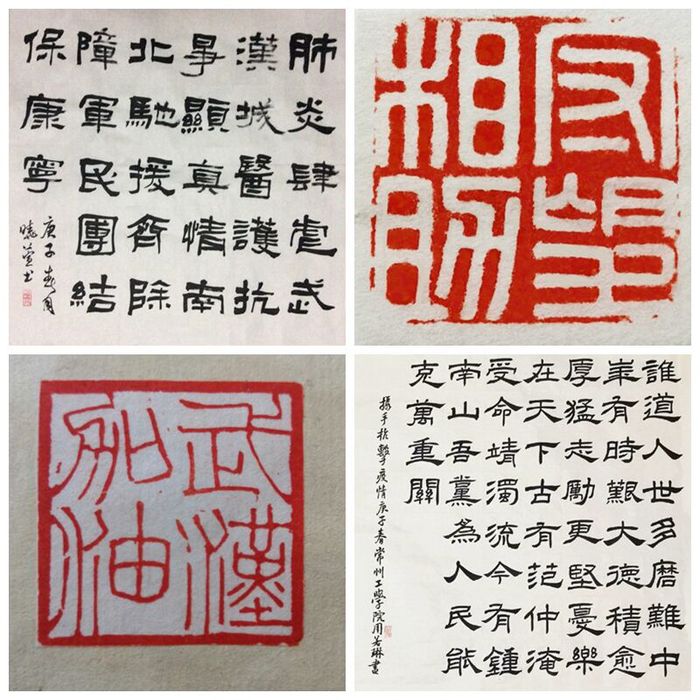 肺炎肆虐武
漢城醫護抗
爭顯真情南
北馳援齊除
障軍民團結
保康寧
庚子春月
曉萱書
守望
相助
武漢
加油
誰道人世多磨難中
華有時艱大德積愈
厚猛志勵更堅憂樂
在天下古有范仲淹
受命靖濁流今有鍾
南山吾黨為人民能
克萬重關
攜手抗擊疫情庚子春常州工學院周若琳書